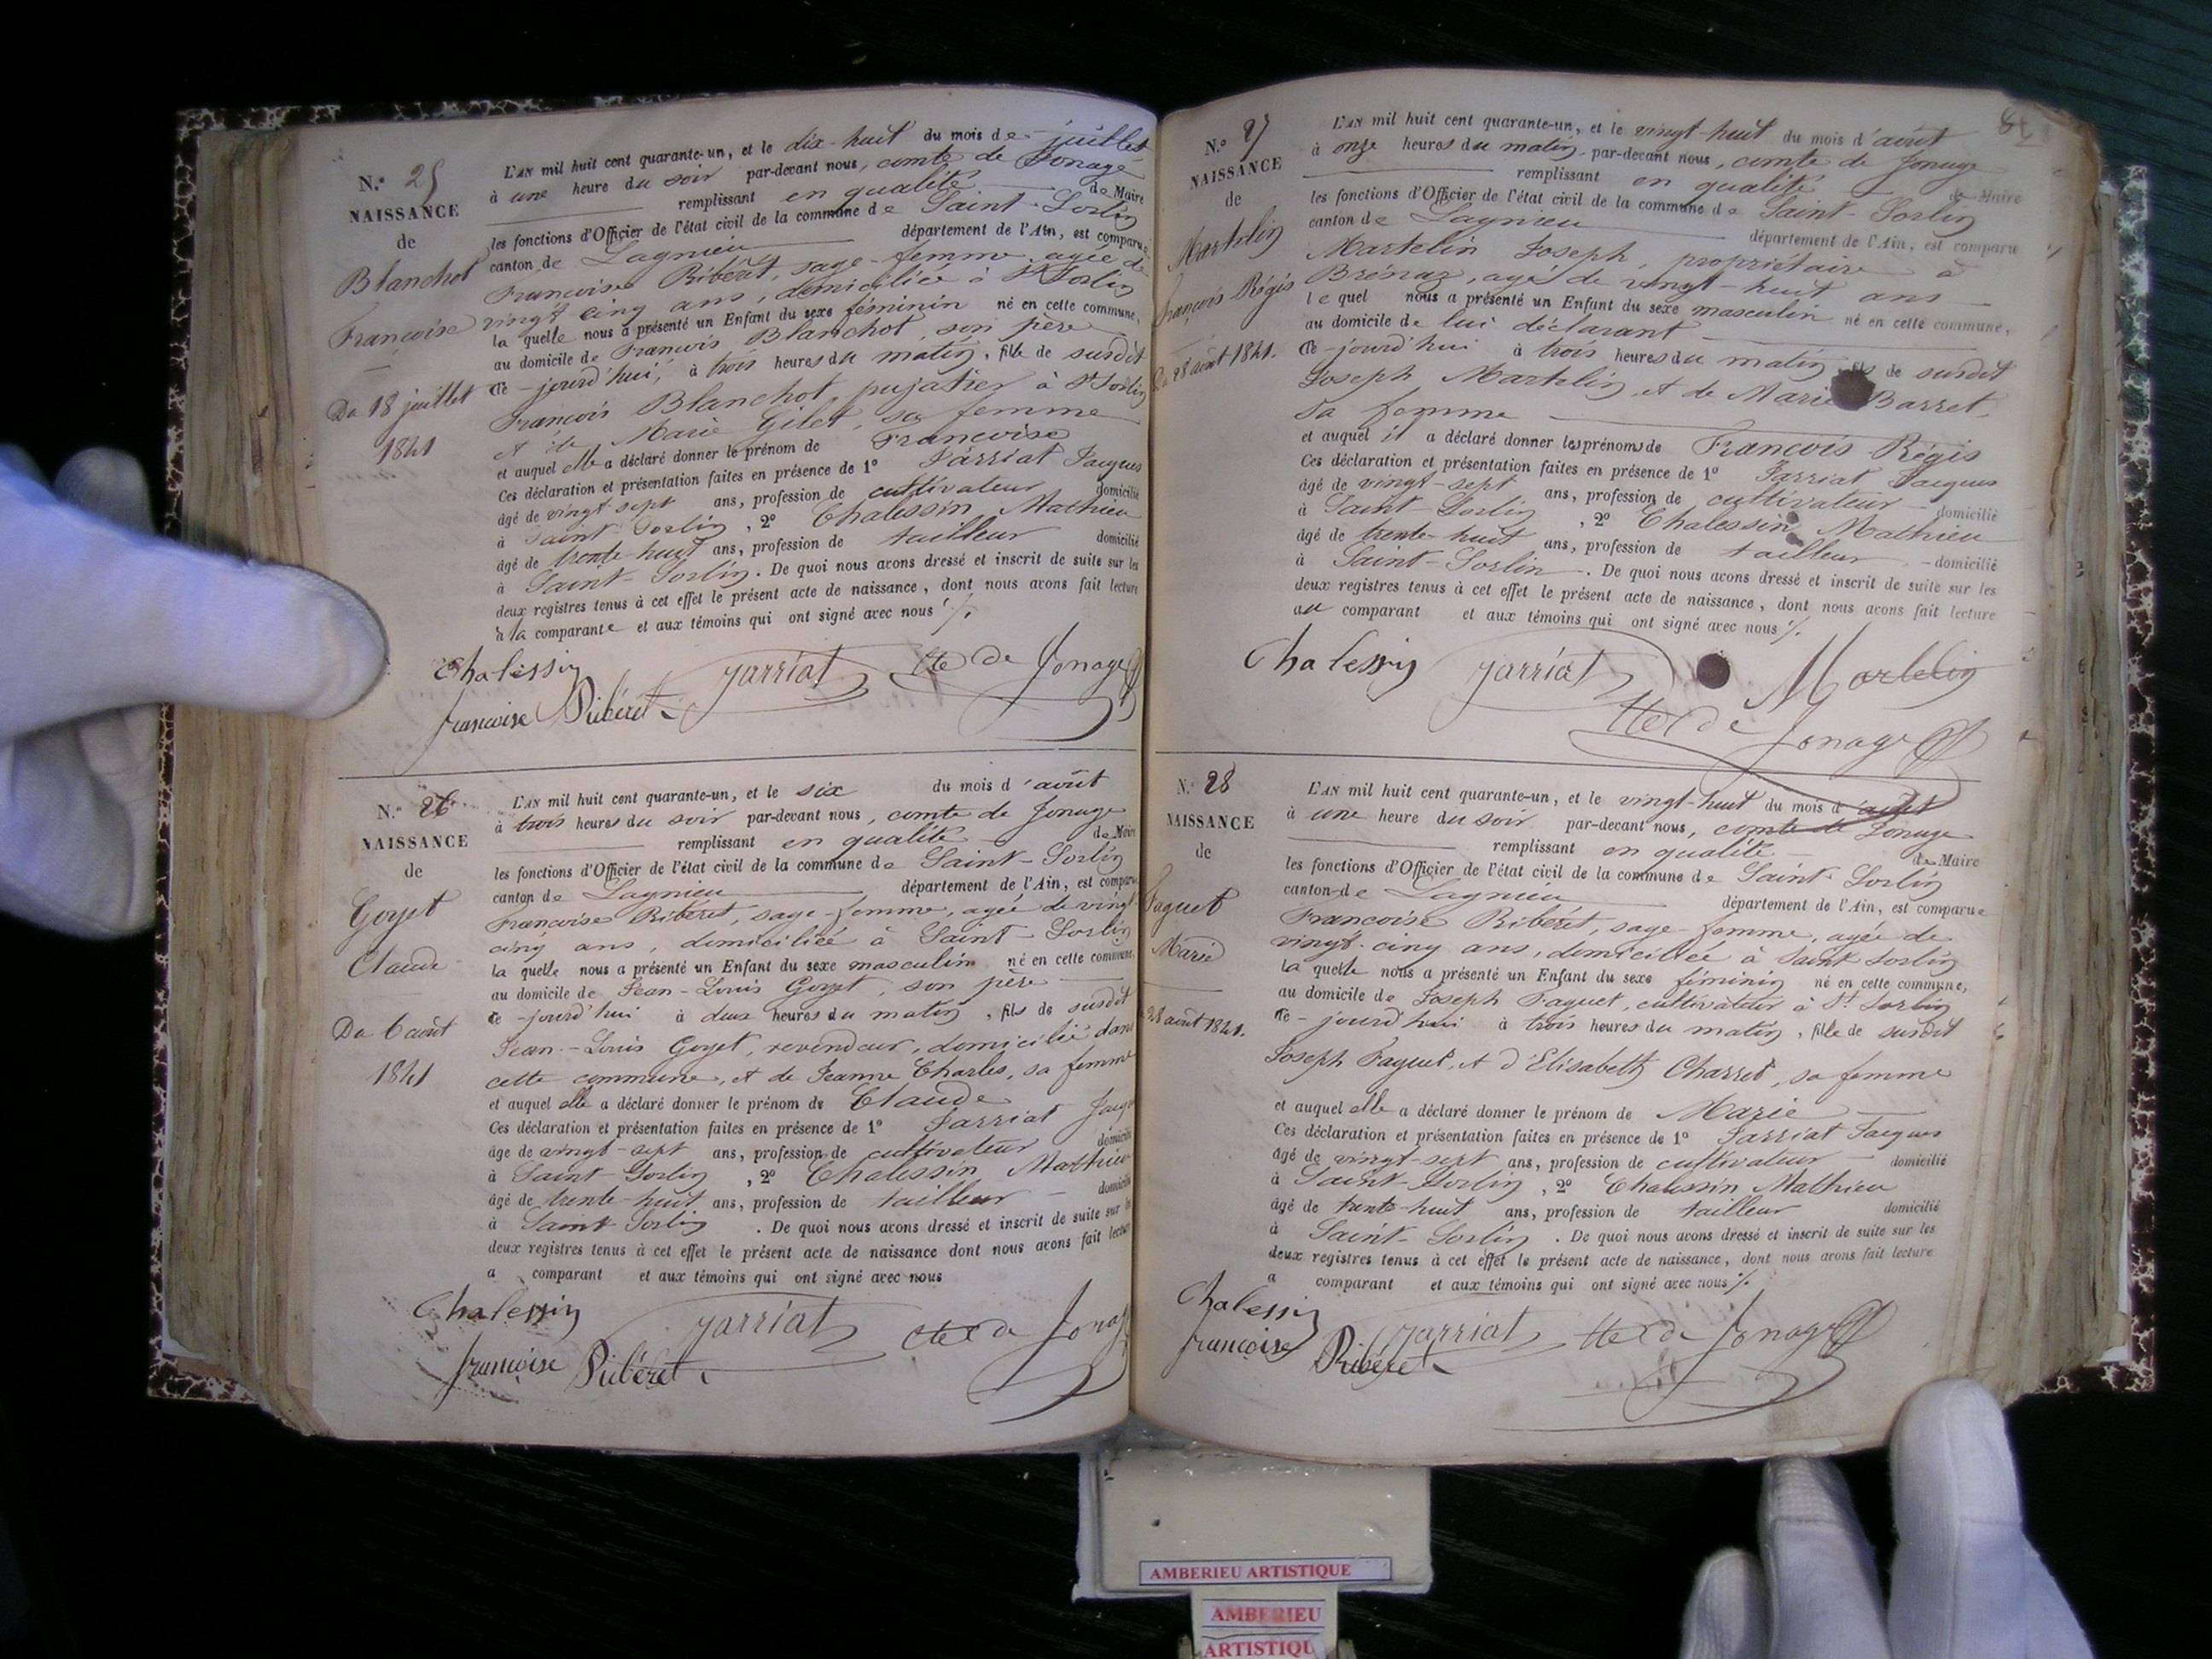 N.° 25
NAISSANCE
de
Blanchot
Françoise
Du 18 juillet
1841
L'AN mil huit cent quarante-un, et le dix-huit du mois de juillet
à une heure du soir par-devant nous, comte de Jonage
remplissant en qualité de Maire
les fonctions d'Officier de l'état civil de la commune de Saint-Sorlin
canton de Lagnieu département de l'Ain, est comparue
Françoise Ribéret, sage-femme, agée de
vingt cinq ans, domiciliée à St Sorlin
la quelle nous a présenté un Enfant du sexe féminin né en cette commune,
au domicile de François Blanchot, son père
ce-jourd'hui, à trois heures du matin, fille de susdit
François Blanchot pujatier à St Sorlin
et de Marie Gilet, sa femme
et auquel elle a déclaré donner le prénom de Françoise
Ces déclaration et présentation faites en présence de 1° Jarriat Jacques
âgé de vingt-sept ans, profession de cultivateur domicilié
à Saint Sorlin, 2° Chalessin Mathieu
âgé de trente-huit ans, profession de tailleur domicilié
à Saint-Sorlin. De quoi nous avons dressé et inscrit de suite sur les
deux registres tenus à cet effet le présent acte de naissance, dont nous avons fait lecture
à la comparante et aux témoins qui ont signé avec nous
Chalessin Jarriat Cte de Jonage
françoise Ribéret
N.° 26
NAISSANCE
de
Goyet
Claude
Du 6 août
1841
L'AN mil huit cent quarante-un, et le six du mois d'août
à trois heures du soir par-devant nous, comte de Jonage
remplissant en qualité de Maire
les fonctions d'Officier de l'état civil de la commune de Saint-Sorlin
canton de Lagnieu département de l'Ain, est comparue
Françoise Ribéret, sage-femme, agée de vingt
cinq ans, domiciliée à Saint-Sorlin
la quelle nous a présenté un Enfant du sexe masculin né en cette commune,
au domicile de Jean-Louis Goyet, son père
ce-jourd'hui à deux heures du matin, fils de susdit
Jean-Louis Goyet, revendeur, domicilié dans
cette commune, et de Jeanne Charles, sa femme
et auquel elle a déclaré donner le prénom de Claude
Ces déclaration et présentation faites en présence de 1° Jarriat Jacq
âgé de vingt-sept ans, profession de cultivateur domicilié
à Saint-Sorlin, 2° Chalessin Mathieu
âgé de trente-huit ans, profession de tailleur domicilié
à Saint-Sorlin. De quoi nous avons dressé et inscrit de suite sur les
deux registres tenus à cet effet le présent acte de naissance dont nous avons fait lecture
a comparant et aux témoins qui ont signé avec nous
Chalessin Jarriat Cte de Jonage
françoise Ribéret
N.° 27
NAISSANCE
de
Martelin
François Régis
Du 28 août 1841.
L'AN mil huit cent quarante-un, et le vingt-huit du mois d'août
à onze heures du matin par-devant nous, comte de Jonage
remplissant en qualité de Maire
les fonctions d'Officier de l'état civil de la commune de Saint-Sorlin
canton de Lagnieu département de l'Ain, est comparu
Martelin Joseph, propriétaire à
Brénaz, agé de vingt-huit ans
le quel nous a présenté un Enfant du sexe masculin né en cette commune,
au domicile de lui déclarant
ce-jourd'hui à trois heures du matin, fils de susdit
Joseph Martelin, et de Marie Barret
sa femme
et auquel il a déclaré donner les prénoms de François Régis
Ces déclaration et présentation faites en présence de 1° Jarriat Jacques
âgé de vingt-sept ans, profession de cultivateur domicilié
à Saint-Sorlin, 2° Chalessin Mathieu
âgé de trente-huit ans, profession de tailleur domicilié
à Saint-Sorlin. De quoi nous avons dressé et inscrit de suite sur les
deux registres tenus à cet effet le présent acte de naissance, dont nous avons fait lecture
au comparant et aux témoins qui ont signé avec nous
Chalessin Jarriat Martelin
Cte de Jonage
N.° 28
NAISSANCE
de
Faguet
Marie
28 août 1841.
L'AN mil huit cent quarante-un, et le vingt-huit du mois d'août
à une heure du soir par-devant nous, comte de Jonage
remplissant en qualité de Maire
les fonctions d'Officier de l'état civil de la commune de Saint Sorlin
canton de Lagnieu département de l'Ain, est comparue
Françoise Ribéret, sage-femme, agée de
vingt-cinq ans, domiciliée à Saint Sorlin
la quelle nous a présenté un Enfant du sexe féminin né en cette commune,
au domicile de Joseph Faguet, cultivateur à St Sorlin
ce-jourd'hui à trois heures du matin, fille de susdit
Joseph Faguet, et d'Elisabeth Charret, sa femme
et auquel elle a déclaré donner le prénom de Marie
Ces déclaration et présentation faites en présence de 1° Jarriat Jacques
âgé de vingt-sept ans, profession de cultivateur domicilié
à Saint-Sorlin, 2° Chalessin Mathieu
âgé de trente-huit ans, profession de tailleur domicilié
à Saint-Sorlin. De quoi nous avons dressé et inscrit de suite sur les
deux registres tenus à cet effet le présent acte de naissance, dont nous avons fait lecture
a comparant et aux témoins qui ont signé avec nous
Chalessin Jarriat Cte de Jonage
françoise Ribéret
AMBERIEU ARTISTIQUE
AMBERIEU
ARTISTIQU